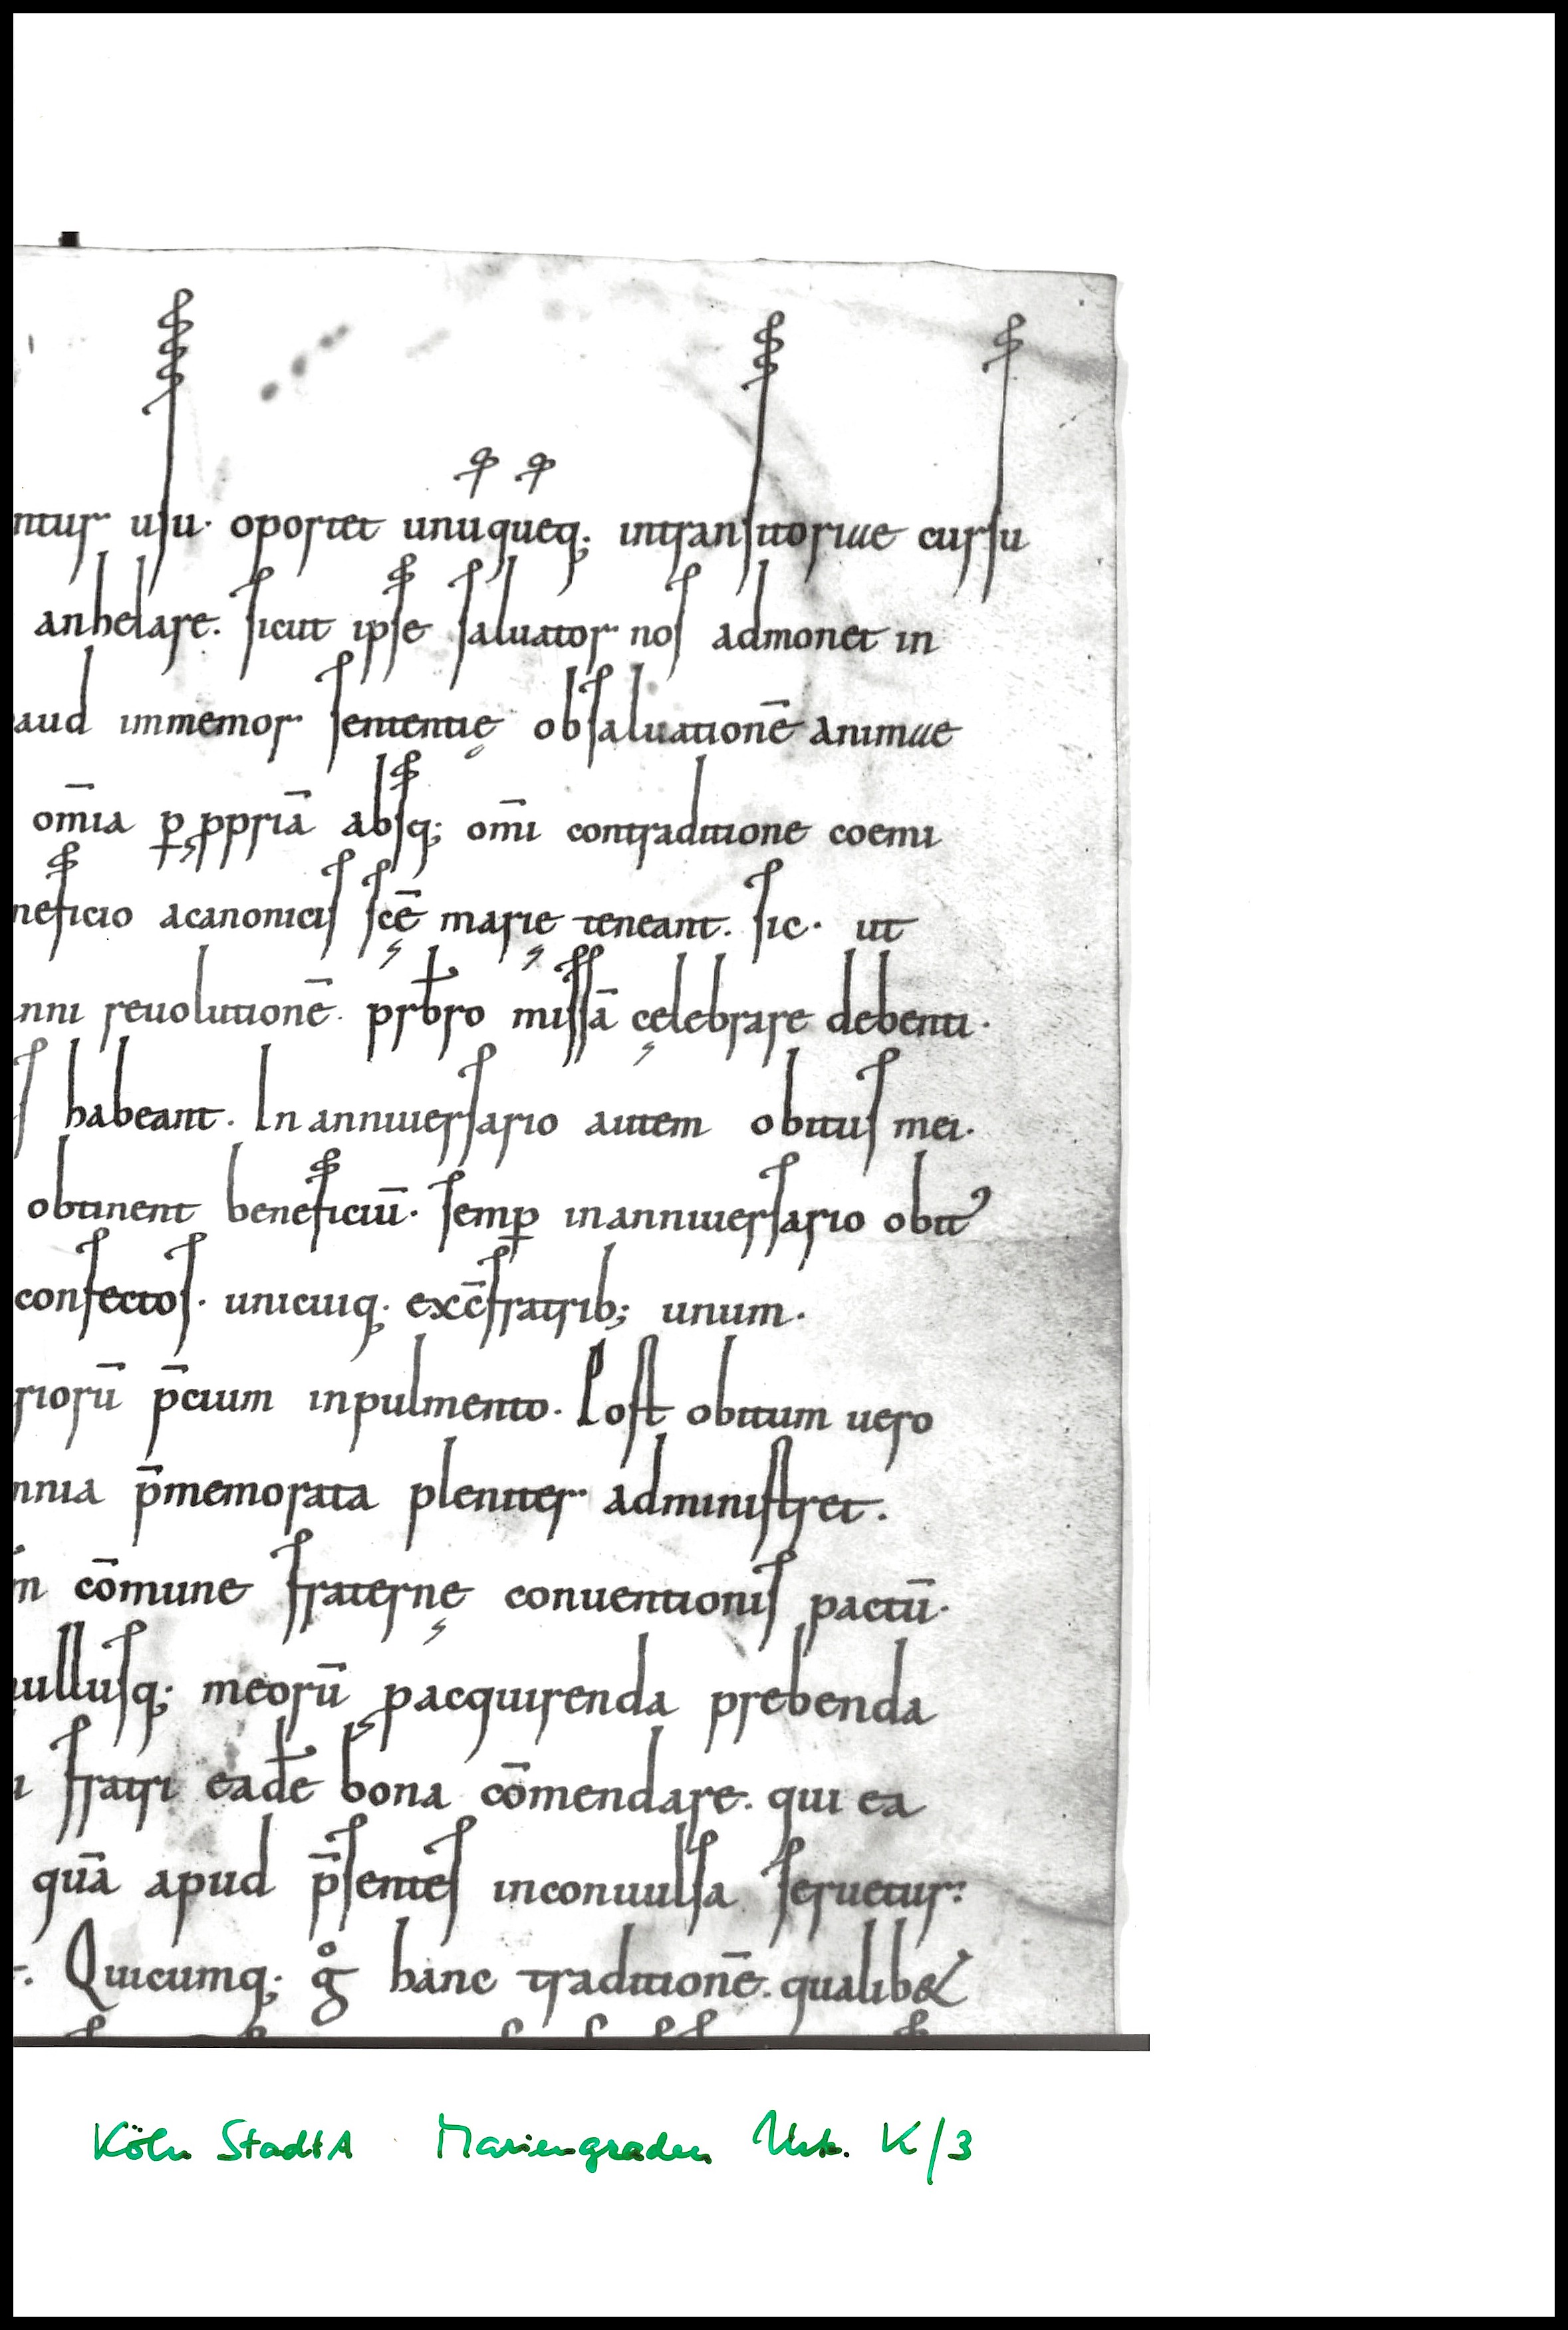 ntur usu. oportet unuqueq; intransitoriae cursu
anhelare. sicut ipse saluator nos admonet in
aud immemor sententię obsaluationē animae
om̄ia ꝑ ꝓpriā absq; om̄i contraditione coemi
neficio acanonicis sc̄ę marię teneant. sic. ut
nni reuolutionē. prƀro missā cęlebrare debenti.
s habeant. In anniuersario autem obitus mei.
obtinent beneficiū. semꝑ inanniuersario obitꝰ
confectos. unicuiq. exc̄fratrib; unum.
riorū p̄cium inpulmento. Post obitum uero
nnia p̄memorata pleniter administret.
m cōmune fraternę conuentionis pactū.
ullusq; meorū ꝓacquirenda prebenda
i fratri eađe bona cōmendare. qui ea
quā apud p̄sentes inconuulsa seruetur.
. Quicumq; g̊ hanc traditionē. qualib&
Köln StadtA Mariengraden Urk. K/3